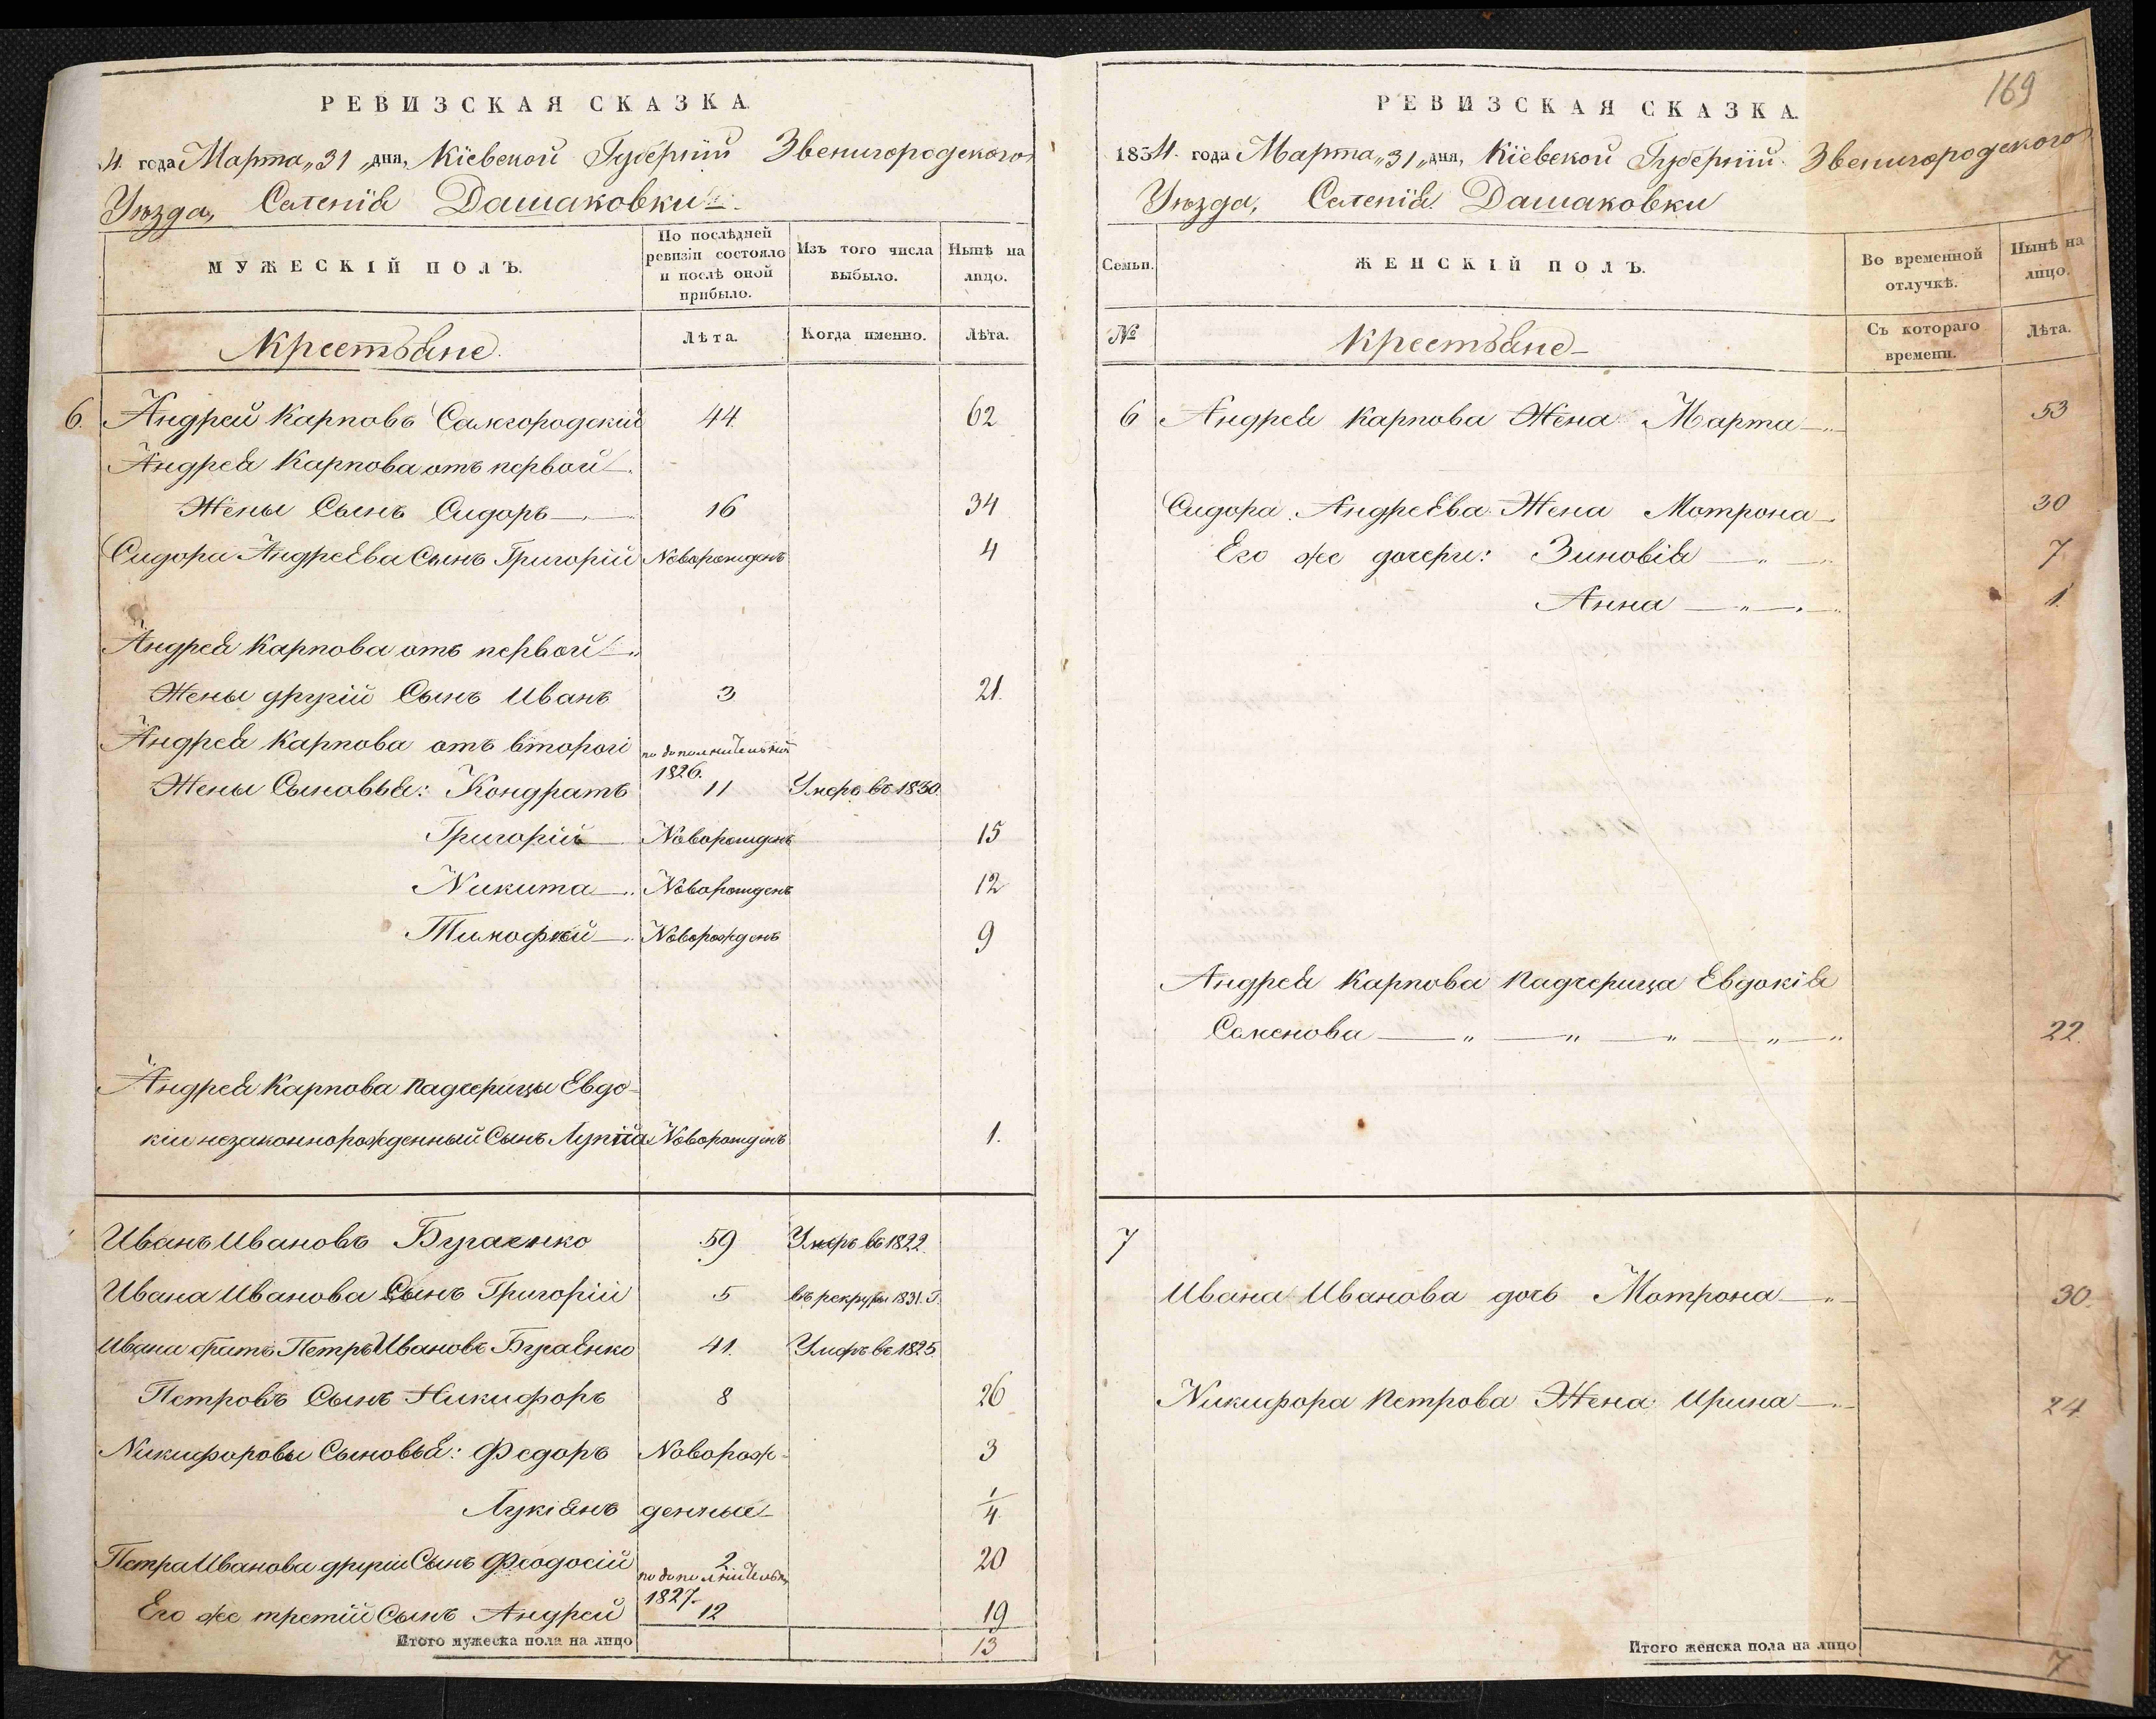 РЕВИЗСКАЯ СКАЗКА.
4. года Марта „31„ дня, Кіевской Губерніи Звенигородского
Уѣзда, Селенія Дашаковки
МУЖЕСКІЙ ПОЛЪ.
По послѣдней ревизіи состояло и послѣ оной прибыло.
Изъ того числа выбыло.
Нынѣ на лицо.
Крестьяне.
Лѣта.
Когда именно.
Лѣта.
6. Андрей Карповъ Самгородскій 44. 62
Андрея Карпова отъ первой
Жены Сынъ Сидоръ 16 34
Сидора Андреєва Сынъ Григорій Новорожденъ 4
Андрея Карпова отъ первой
Жены другій Сынъ Иванъ 3 21.
Андрея Карпова отъ второй по дополнительной
Жены Сыновья: Кондратъ 1826. 11 Умеръ въ 1830.
Григорій Новорожденъ 15
Никита Новорожденъ 12
Тимофей Новорожденъ 9
Андрея Карпова падчерицы Евдо-
кіи незаконнорожденный Сынъ Новорожденъ 1.
Иванъ Ивановъ Бугаенко 59 Умеръ въ 1822.
Ивана Иванова Сынъ Григорій 5 въ рекруты 1831. Г.
Ивана братъ Петръ Ивановъ Бугаєнко 41. Умеръ въ 1825.
Петровъ Сынъ Никифоръ 8 26
Никифоровы Сыновья: Федоръ Новорож- 3
Лукіянъ денные 1/4
Петра Иванова другій Сынъ Феодосій 2 20
по дополнительн
Его же третій Сынъ Андрей 1827. 12 19
Итого мужеска пола на лицо 13
169
РЕВИЗСКАЯ СКАЗКА.
1834. года Марта „31„ дня, Кіевской Губерніи Звенигородского
Уѣзда, Селенія Дашаковки
Семьи.
ЖЕНСКІЙ ПОЛЪ.
Во временной отлучкѣ.
Нынѣ на лицо.
№
Крестьяне
Съ котораго времени.
Лѣта.
6 Андрея Карпова Жена Марта 53
Сидора Андреєва Жена Мотрона 30
Его же дочери: Зиновія 7
Анна 1.
Андрея Карпова падчерица Евдокія
Семенова 22.
7
Ивана Иванова дочь Мотрона 30.
Никифора Петрова Жена Ирина 24
Итого женска пола на лицо 7